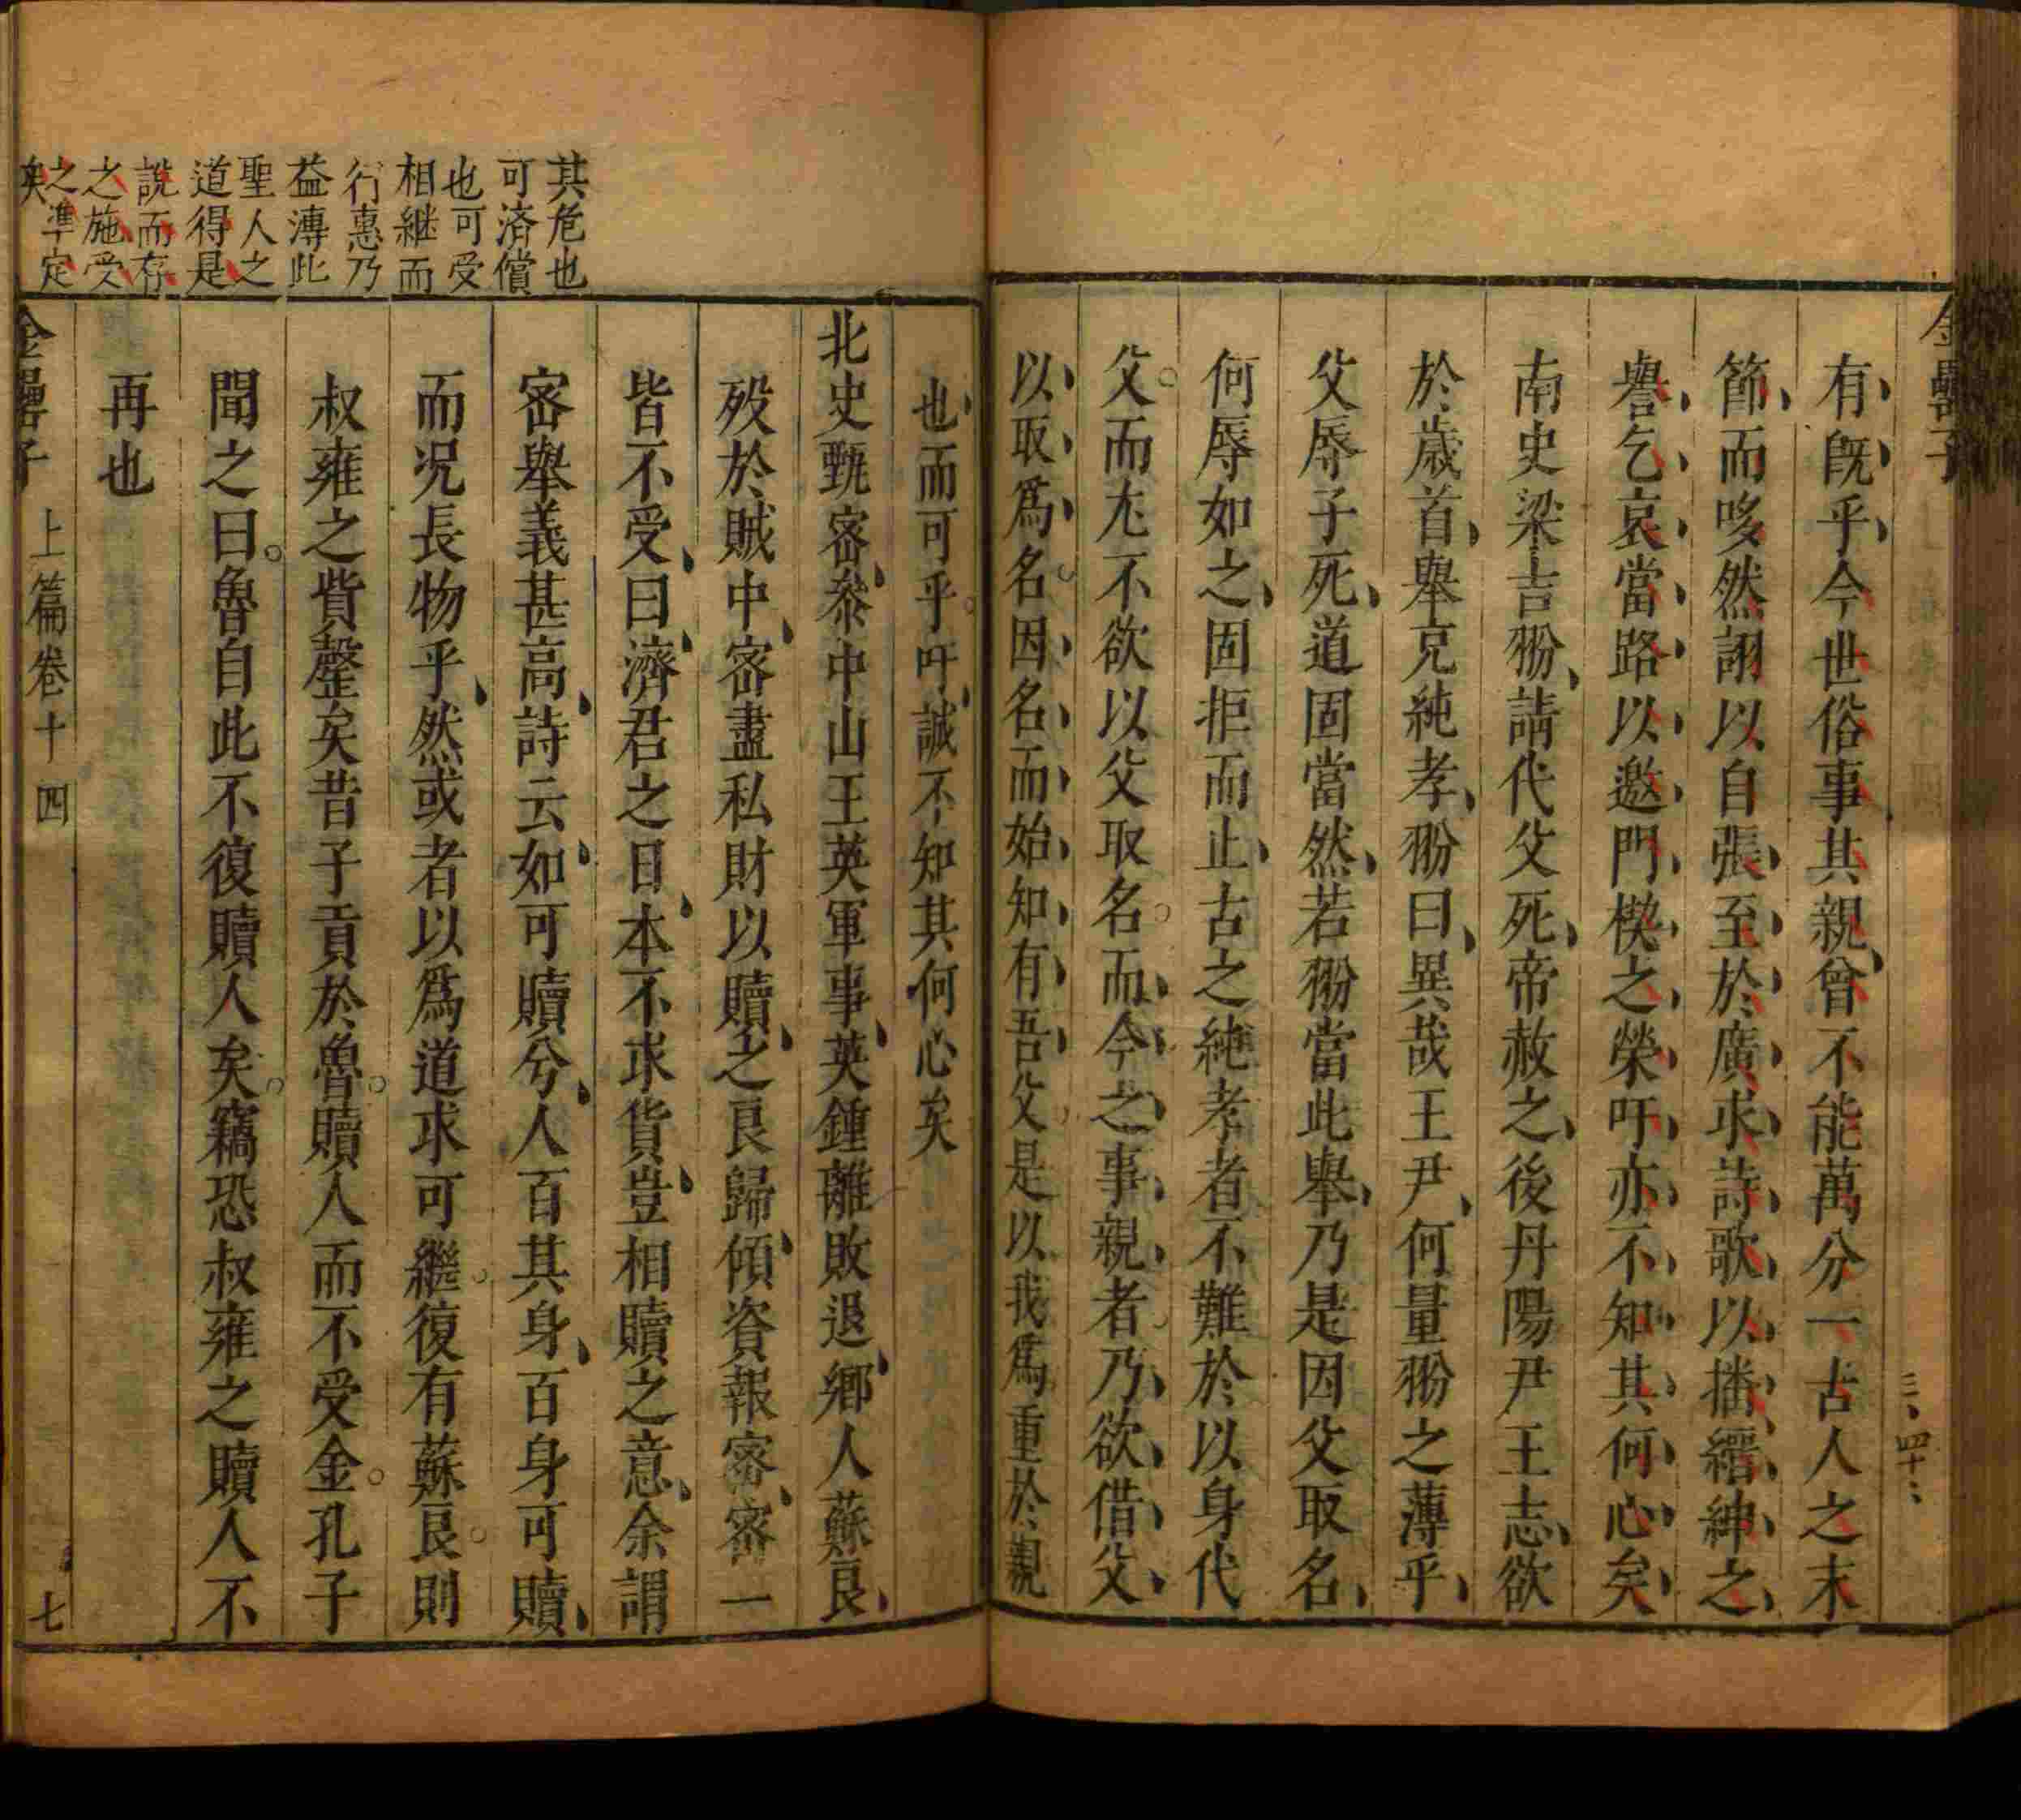 金罍子
三、四十三
有既乎今世俗事其親曾不能萬分一古人之末
節而哆然詡以自張至於廣求詩歌以播縉紳之
譽乞哀當路以邀門楔之榮吁亦不知其何心矣
南史梁吉翂請代父死帝赦之後丹陽尹王志欲
於歲首舉充純孝翂曰異哉王尹何量翂之薄乎
父辱子死道固當然若翂當此舉乃是因父取名
何辱如之固拒而止古之純孝者不難於以身代
父而尤不欲以父取名而今之事親者乃欲借父
以取爲名因名而始知有吾父是以我爲重於親
也而可乎吁誠不知其何心矣
北史甄密叅中山王英軍事英鍾離敗退鄉人蘇良
歿於賊中密盡私財以贖之良歸傾資報密密一
皆不受曰濟君之日本不求貨豈相贖之意余謂
密舉義甚高詩云如可贖兮人百其身百身可贖
而况長物乎然或者以爲道求可繼復有蘇良則
叔雍之貲罄矣昔子貢於魯贖人而不受金孔子
聞之曰魯自此不復贖人矣竊恐叔雍之贖人不
再也
其危也
可濟償
也可受
相継而
行惠乃
益溥此
聖人之
道得是
說而存
之施受
之準定
矣
金罍子
上篇卷十四
七